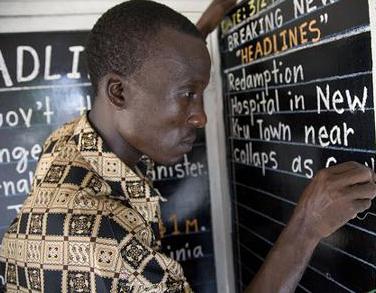 ADLI
ov't
nge
rna inister.
1M.
inia
DATE: 3/2
BREAKING NEW
"HEADLINES"
Redamption
Hospital in New
Kru Town near
collaps as